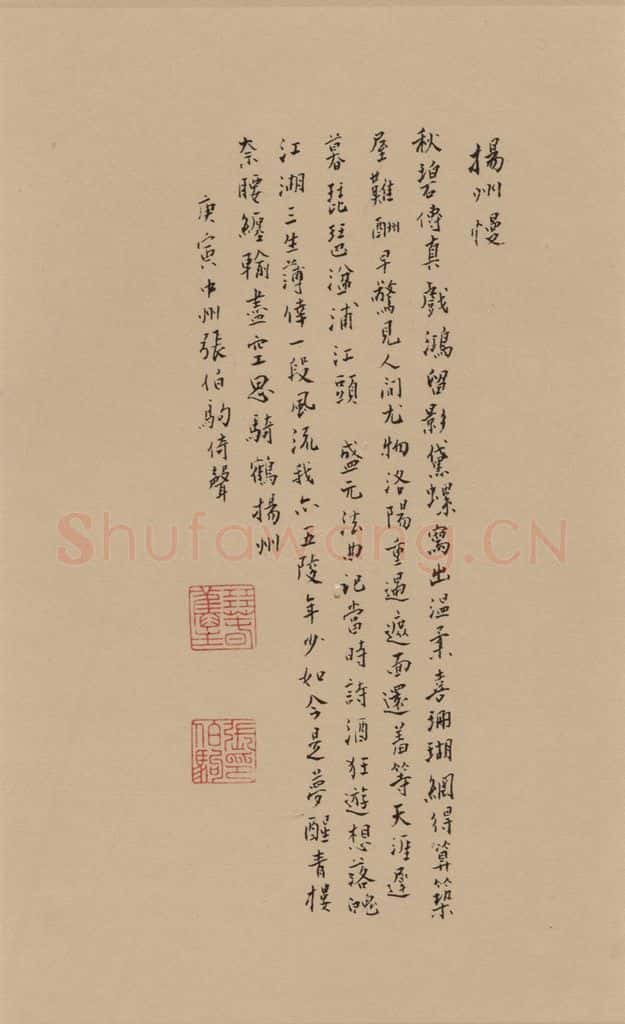 揚州慢
秋碧傳真戲鴻留影黛螺寫出溫柔喜珊瑚網得算築
屋難酬早驚見人間尤物洛陽重遇遮面還羞等天涯遲
暮琵琶湓浦江頭 盛元法曲記當時詩酒狂遊想落魄
江湖三生薄倖一段風流我亦五陵年少如今是夢醒青樓
奈腰纏輸盡空思騎鶴揚州
庚寅中州張伯駒倚聲
張伯駒印
Shufawang.CN